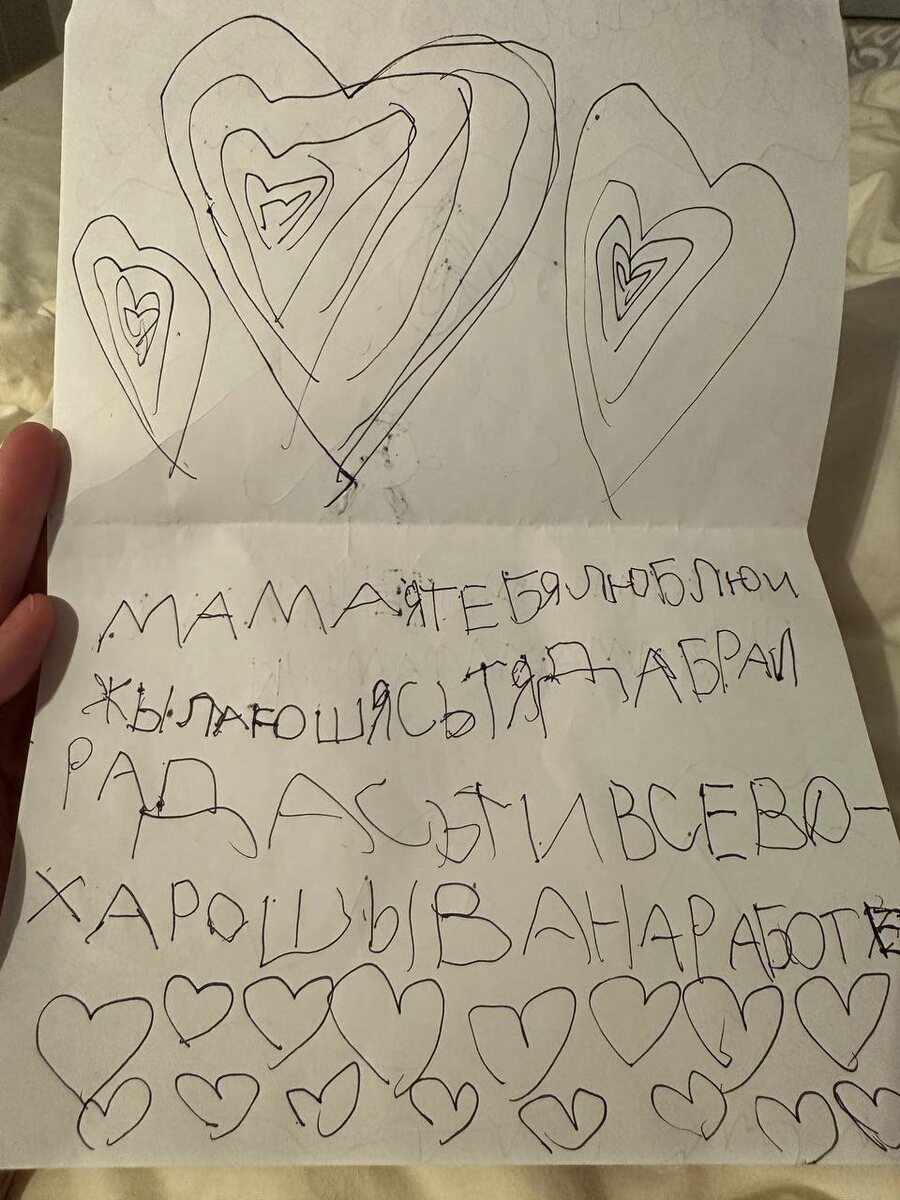 МАМАЯТЕБЯЛЮБЛЮИ
ЖЫЛАЮШЯСЬТЯДАБРАИ
РАДАСЬТИВСЕВО-
ХАРОШЫВАНАРАБОТЕ